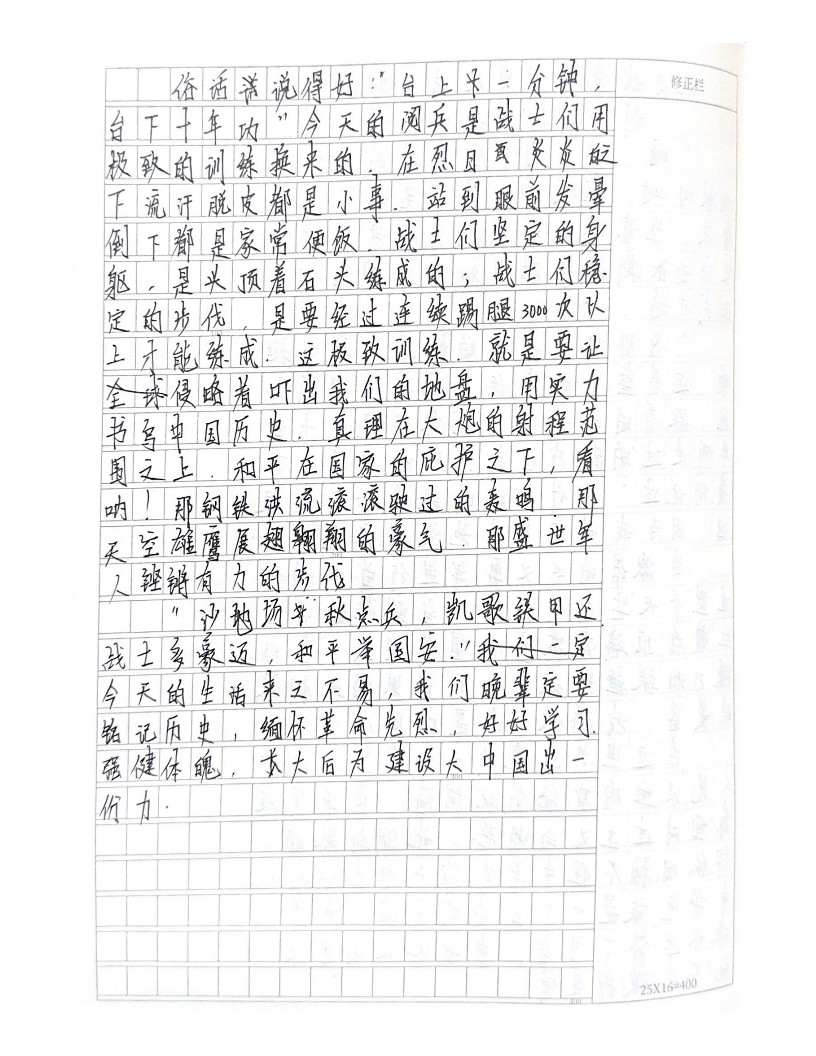 修正栏
俗话说得好："台上一分钟，
台下十年功"今天的阅兵是战士们用
极致的训练换来的．在烈日炎炎的
下流汗脱皮都是小事．站到眼前发晕
倒下都是家常便饭．战士们坚定的身
躯，是头顶着石头练成的；战士们稳
定的步伐，是要经过连续踢腿3000次以
上才能练成．这极致训练．就是要让
侵略着吓出我们的地盘，用实力
书写中国历史．真理在大炮的射程范
围之上．和平在国家的庇护之下，看
呐！那钢铁洪流滚滚驶过的轰鸣．那
天空雄鹰展翅翱翔的豪气．那盛世年
人铿锵有力的步伐
"沙场秋点兵，凯歌铁甲还．
战士多豪迈，和平举国安．"
今天的生活来之不易，我们晚辈定要
铭记历史，缅怀革命先烈，好好学习．
强健体魄．长大后为建设大中国出一
份力．
25X16=400